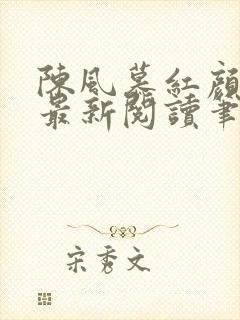 陳風慕紅顏
最新閱讀筆
宋秀文